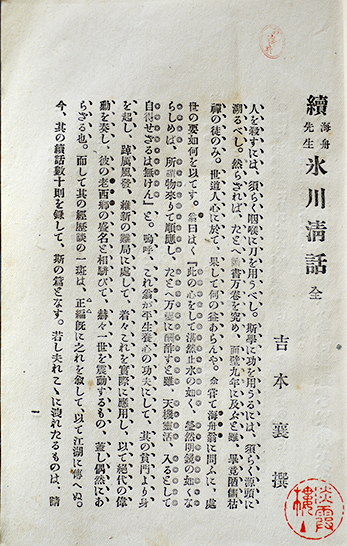 續 海舟先生 氷川清話 全
吉本襄撰
人を殺すには、須らく咽喉に刀を用うべし。斯學に功を用うるには、須らく源頭に
溯るべし。然らざれば、たとへ書万卷を究め、面壁九年に及ぶと雖、畢竟訓詁枯
禪の徒のみ。世道人心に於て、果して何の益あらんや。余嘗て海舟翁に問ふに、處
世の要如何を以てす。翁曰く、『此の心をして湛然止水の如く、瑩然明鏡の如くな
らしめば、所謂物來りて順應し、たとへ万變に酬酢すと雖、天機靈活、入るとして
自得せざるは無けん』と。嗚呼、これ翁が平生養心の功夫にして、其の貧門より身
を起し、踔厲風發、維新の難局に處して、着々これを實際に應用し、以て絶代の偉
勳を奏し、彼の老西郷の盛名と相て、赫々一世を震動するもの、蓋し偶然にあ
らざる也。而して其の經歴談の一斑は、正編既に之れを叙して、以て江湖に傳へぬ。
今、其の續話數十則を録して、斯の篇となす。若し夫れこゝに洩れたるものは、請
一
淡霞樓